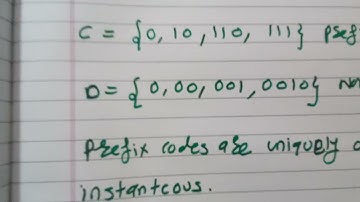 C = {0, 10, 110, 111}
D = {0, 00, 001, 0010}
prefix codes are uniquely
instanteous.